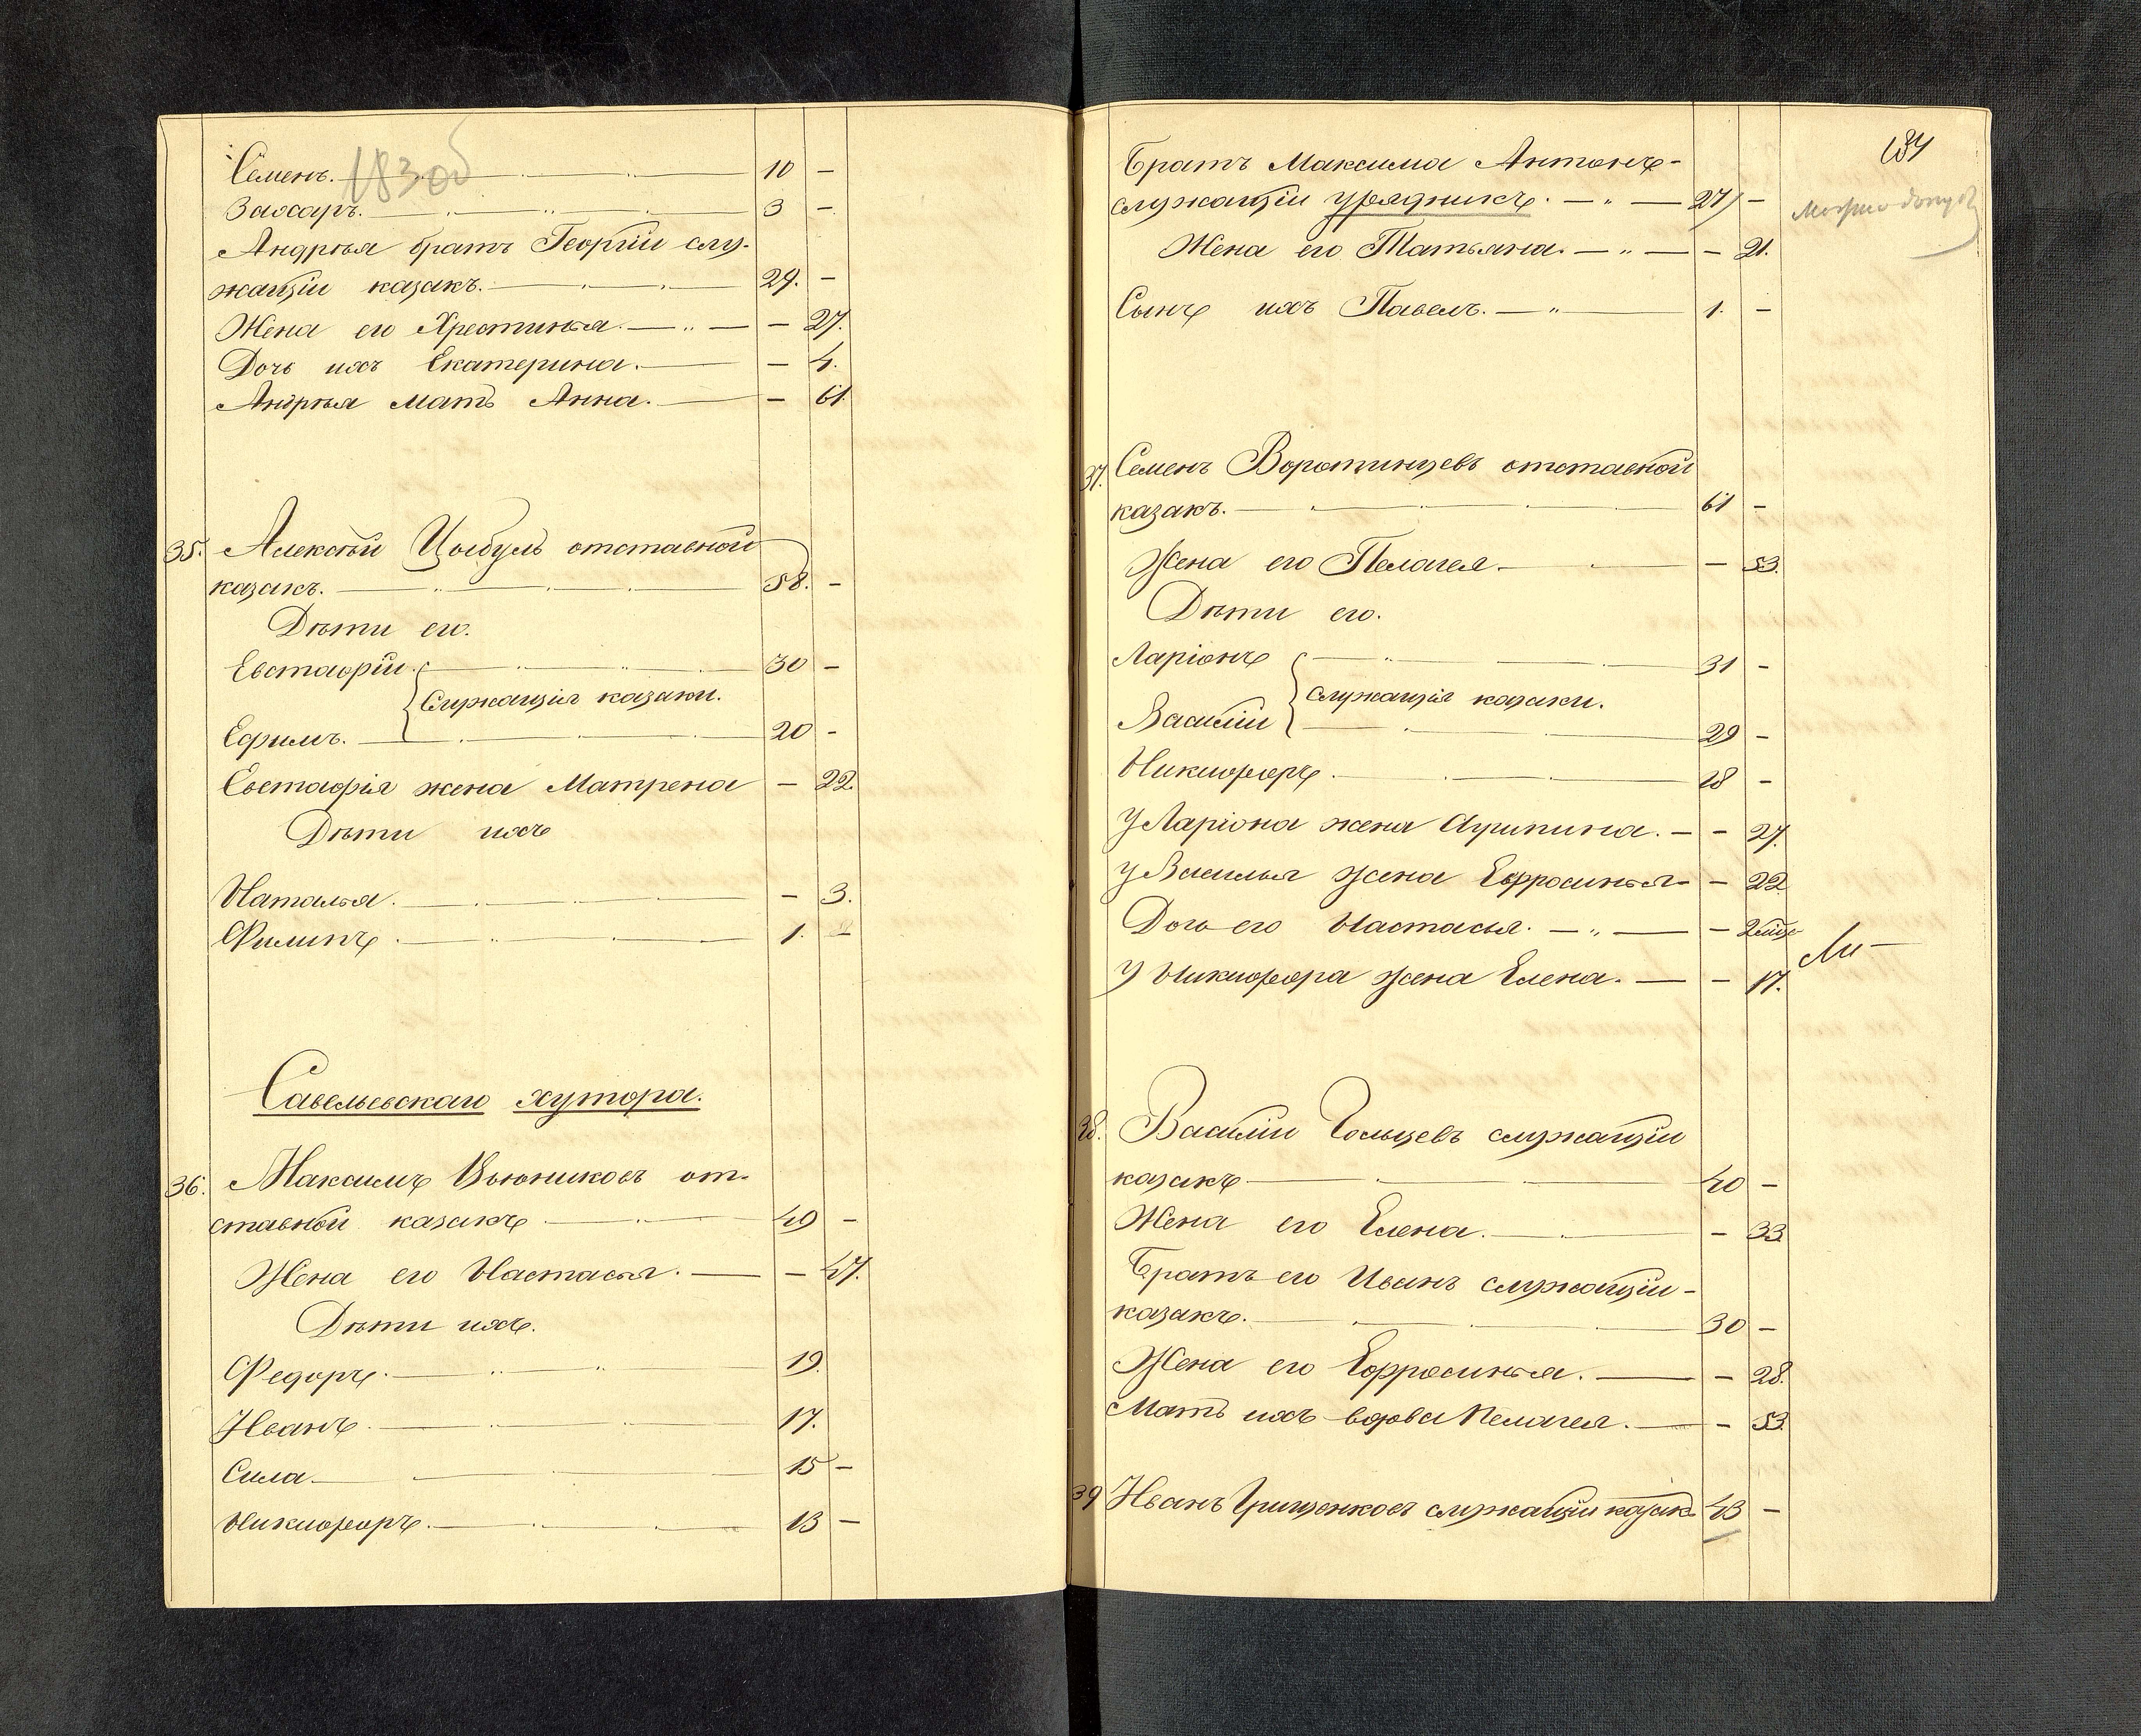 183об
Семенъ. 10 –
Захаръ. 3 –
Андрѣя братъ Георгій слу-
жащій казакъ. 29. –
Жена его Хрестинья. – 27.
Дочь ихъ Екатерина. – 4.
Андрѣя мать Анна. – 61.
35. Алексѣй Цыбуль отставной
казакъ. 58. –
Дѣти его.
Евстафій. 30 –
Служащія казаки.
Ефимъ. 20 –
Евстафія жена Матрена – 22.
Дѣти ихъ
Наталья. – 3.
Филипъ. 1. –
Савельевскаго хутора.
36. Максимъ Вьюниковъ от-
ставной казакъ 49 –
Жена его Настасья. – 47.
Дѣти ихъ.
Федоръ. 19.
Иванъ. 17.
Сила. 15 –
Никифоръ. 13 –
184
Братъ Максима Антонъ-
служащій урядникъ. 27 –
Жена его Татьяна. – 21.
Сынъ ихъ Павелъ. 1. –
37. Семенъ Воротинцевъ отставной
казакъ. 61 –
Жена его Пелагея. – 53.
Дѣти его.
Ларіонъ 31 –
служащія казаки.
Василій 29 –
Никифоръ. 18 –
У Ларіона жена Агрипина. – 27.
У Василья жена Ефросинья – 22
Дочь его Настасья. – 2
У Никифора жена Елена. – 17.
38. Василій Гольцевъ служащій
казакъ 40 –
Жена его Елена. – 33
Братъ его Иванъ служащій-
казакъ. 30 –
Жена его Ефросинья. – 28.
Мать ихъ вдова Пелагея. – 53.
39 Иванъ Грищенковъ служащій казак. 43 –